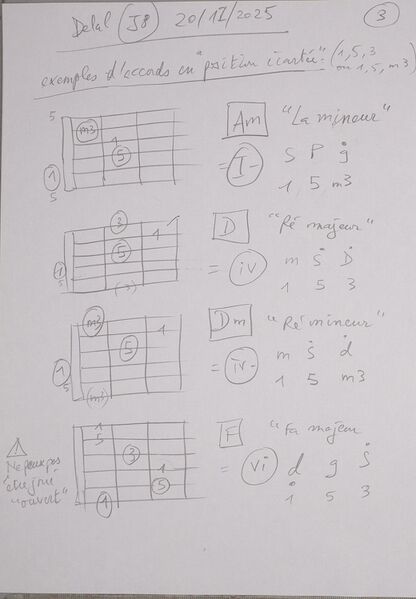 Delal J8 20/11/2025 3
exemples d'accords en "position écartée" (1, 5, 3
ou 1, 5, m3)
5 m3 1 5 1 5
Am "La mineur"
= I- S P g
1 5 m3
3 1 5 1 5 (3)
D "Ré majeur"
= iv m S D
1 5 3
m3 1 5 1 5 (m3)
Dm "Ré mineur"
= iv- m S d
1 5 m3
1 5 3 1 5 1
F "Fa majeur
= vi d g S
1 5 3
Ne peux pas
être joué
"ouvert"